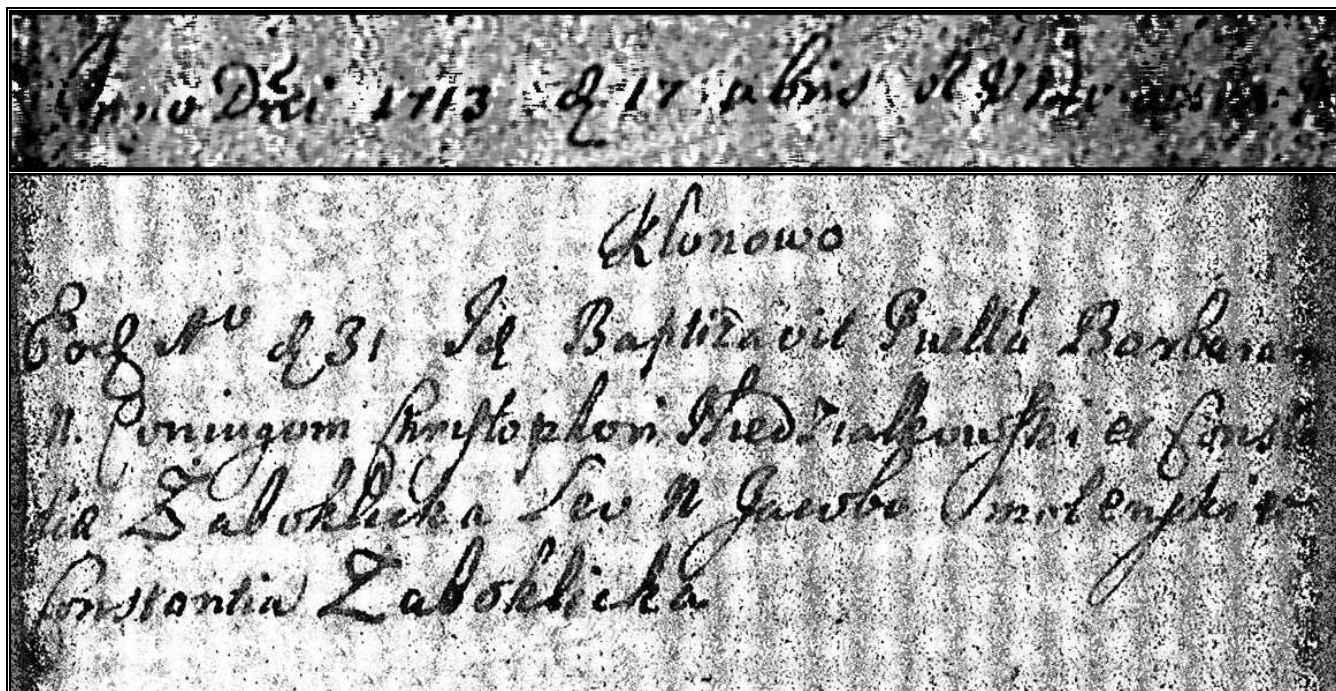 Anno Dni 1713 d 17 abris
Klonowo
Eod A° d 31 Id Baptizavit Puellā Barbaram
N. Coniugom Chrystophori Niedzialkowski et Consta
tia Zaboklicka Lev N Jacobo Smolenski et
Constantia Zaboklicka